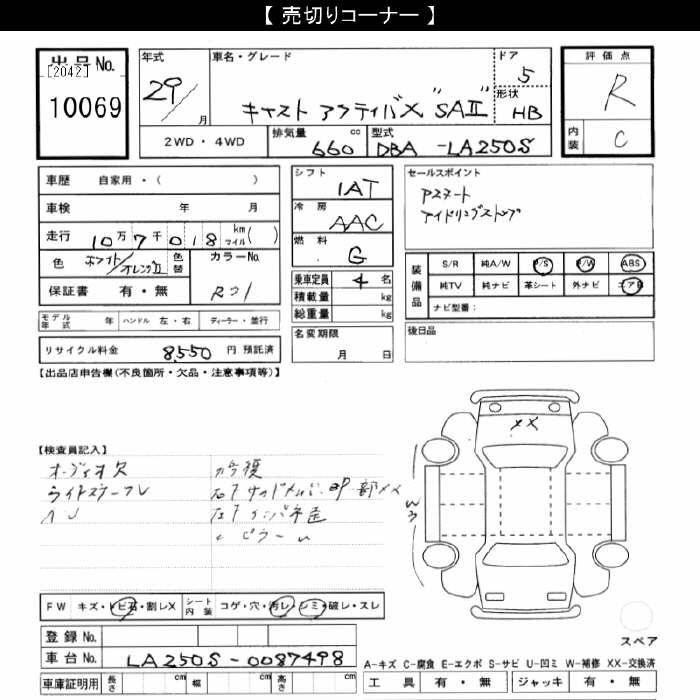 【 売切りコーナー 】
出品No.
[2042]
10069
年式
29/
月
車名・グレード
キャスト アクティバX "SAⅡ"
ドア
5
形状
HB
評価点
R
内装
C
2WD・4WD
排気量
660 cc
型式
DBA-LA250S
車歴 自家用・( )
車検 年 月
走行 10万7千018 km マイル( )
色 ホワイト/オレンジⅡ 色替
カラーNo.
保証書 有・無
シフト
IAT
冷房
AAC
燃料
G
乗車定員 4 名
積載量 kg
総重量 kg
名変期限
月 日
セールスポイント
Pスタート
アイドリングストップ
装備品
S/R 純A/W P/S P/W ABS
純TV 純ナビ 革シート 外ナビ エアB
ナビ型番:
後日品
モデル年式 年 ハンドル 左・右 ディーラー・並行
リサイクル料金 8,550 円 預託済
【出品店申告欄(不良箇所・欠品・注意事項等)】
【検査員記入】
オーディオ欠
XX
W3
FW キズ・トビ石・割レX
シート内装 コゲ・穴・汚レ・シミ・破レ・スレ
登録No.
車台No. LA250S-0087498
車庫証明用 長さ cm 幅 cm 高さ cm
スペア
A-キズ C-腐食 E-エクボ S-サビ U-凹ミ W-補修 XX-交換済
工具 有・無 ジャッキ 有・無